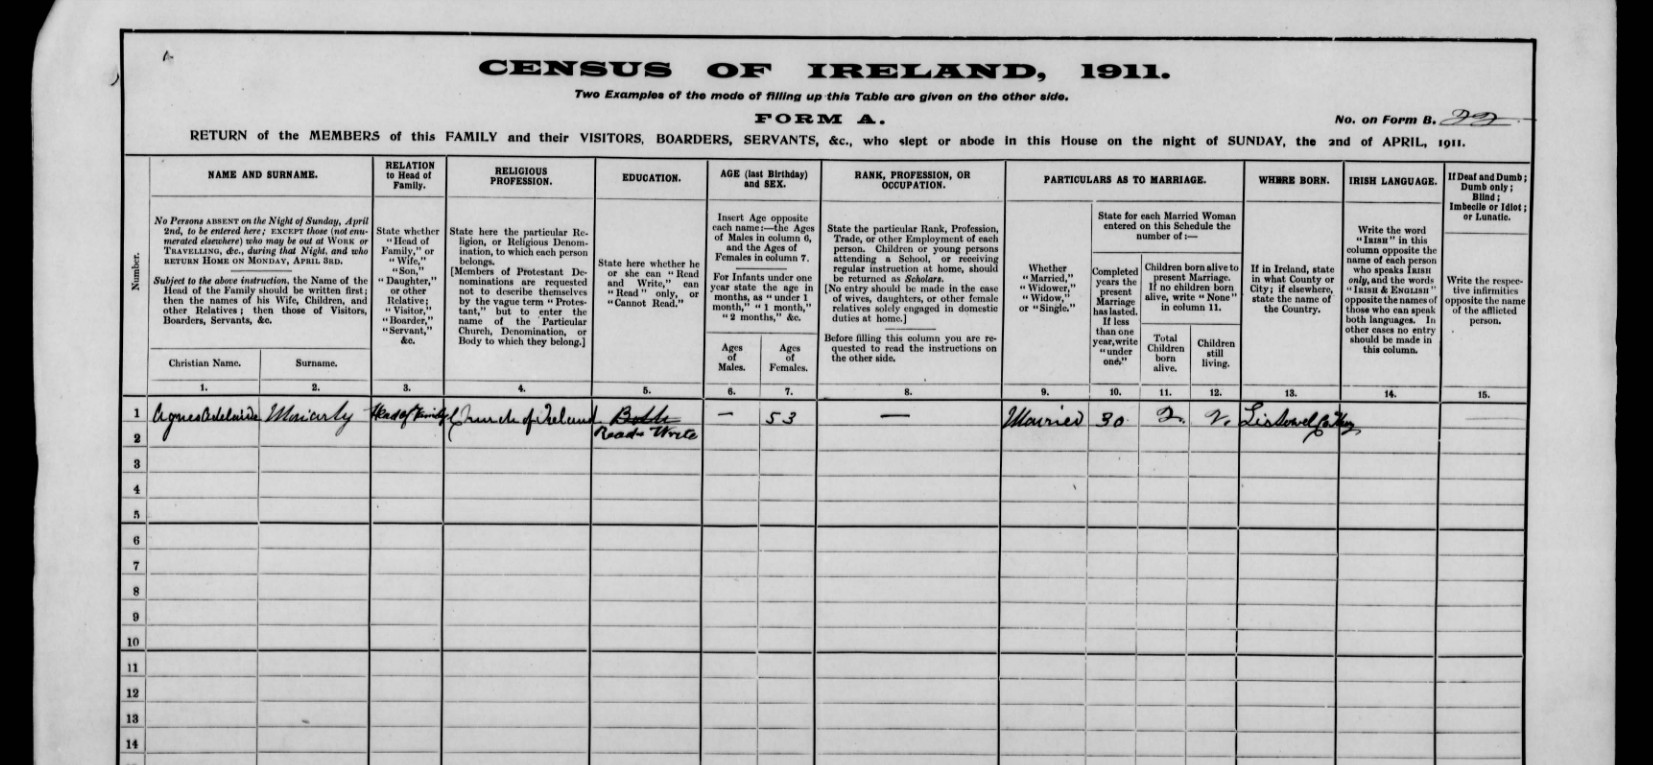 CENSUS OF IRELAND, 1911.
Two Examples of the mode of filling up this Table are given on the other side.
FORM A.
No. on Form B. 22
RETURN of the MEMBERS of this FAMILY and their VISITORS, BOARDERS, SERVANTS, &c., who slept or abode in this House on the night of SUNDAY, the 2nd of APRIL, 1911.
Number.
NAME AND SURNAME.
No Persons ABSENT on the Night of Sunday, April
2nd, to be entered here; EXCEPT those (not enu-
merated elsewhere) who may be out at WORK or
TRAVELLING, &c., during that Night, and who
RETURN HOME ON MONDAY, APRIL 3RD.
Subject to the above instruction, the Name of the
Head of the Family should be written first;
then the names of his Wife, Children, and
other Relatives; then those of Visitors,
Boarders, Servants, &c.
Christian Name.
Surname.
RELATION
to Head of
Family.
State whether
"Head of
Family," or
"Wife,"
"Son,"
"Daughter,"
or other
Relative;
"Visitor,"
"Boarder,"
"Servant,"
&c.
RELIGIOUS
PROFESSION.
State here the particular Re-
ligion, or Religious Denom-
ination, to which each person
belongs.
[Members of Protestant De-
nominations are requested
not to describe themselves
by the vague term "Protes-
tant," but to enter the
name of the Particular
Church, Denomination, or
Body to which they belong.]
EDUCATION.
State here whether he
or she can "Read
and Write," can
"Read" only, or
"Cannot Read."
AGE (last Birthday)
and SEX.
Insert Age opposite
each name:—the Ages
of Males in column 6,
and the Ages of
Females in column 7.
For Infants under one
year state the age in
months, as "under 1
month," "1 month,"
"2 months," &c.
Ages
of
Males.
Ages
of
Females.
RANK, PROFESSION, OR
OCCUPATION.
State the particular Rank, Profession,
Trade, or other Employment of each
person. Children or young persons
attending a School, or receiving
regular instruction at home, should
be returned as Scholars.
[No entry should be made in the case
of wives, daughters, or other female
relatives solely engaged in domestic
duties at home.]
Before filling this column you are re-
quested to read the instructions on
the other side.
PARTICULARS AS TO MARRIAGE.
Whether
"Married,"
"Widower,"
"Widow,"
or "Single."
State for each Married Woman
entered on this Schedule the
number of:—
Completed
years the
present
Marriage
has lasted.
If less
than one
year, write
"under
one."
Children born alive to
present Marriage.
If no children born
alive, write "None"
in column 11.
Total
Children
born
alive.
Children
still
living.
WHERE BORN.
If in Ireland, state
in what County or
City; if elsewhere,
state the name of
the Country.
IRISH LANGUAGE.
Write the word
"IRISH" in this
column opposite the
name of each person
who speaks IRISH
only, and the words
"IRISH & ENGLISH"
opposite the names of
those who can speak
both languages. In
other cases no entry
should be made in
this column.
If Deaf and Dumb;
Dumb only;
Blind;
Imbecile or Idiot;
or Lunatic.
Write the respec-
tive infirmities
opposite the name
of the afflicted
person.
1. 2. 3. 4. 5. 6. 7. 8. 9. 10. 11. 12. 13. 14. 15.
1 Agnes Adelaide Moriarty Head of Family Church of Ireland Both — 53 — Married 30 2. 2. Listowel Co Kerry —
2 Read & Write
3
4
5
6
7
8
9
10
11
12
13
14